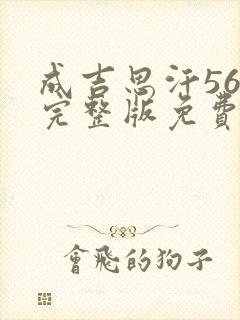 成吉思汗56
完整版免費
會飛的狗子